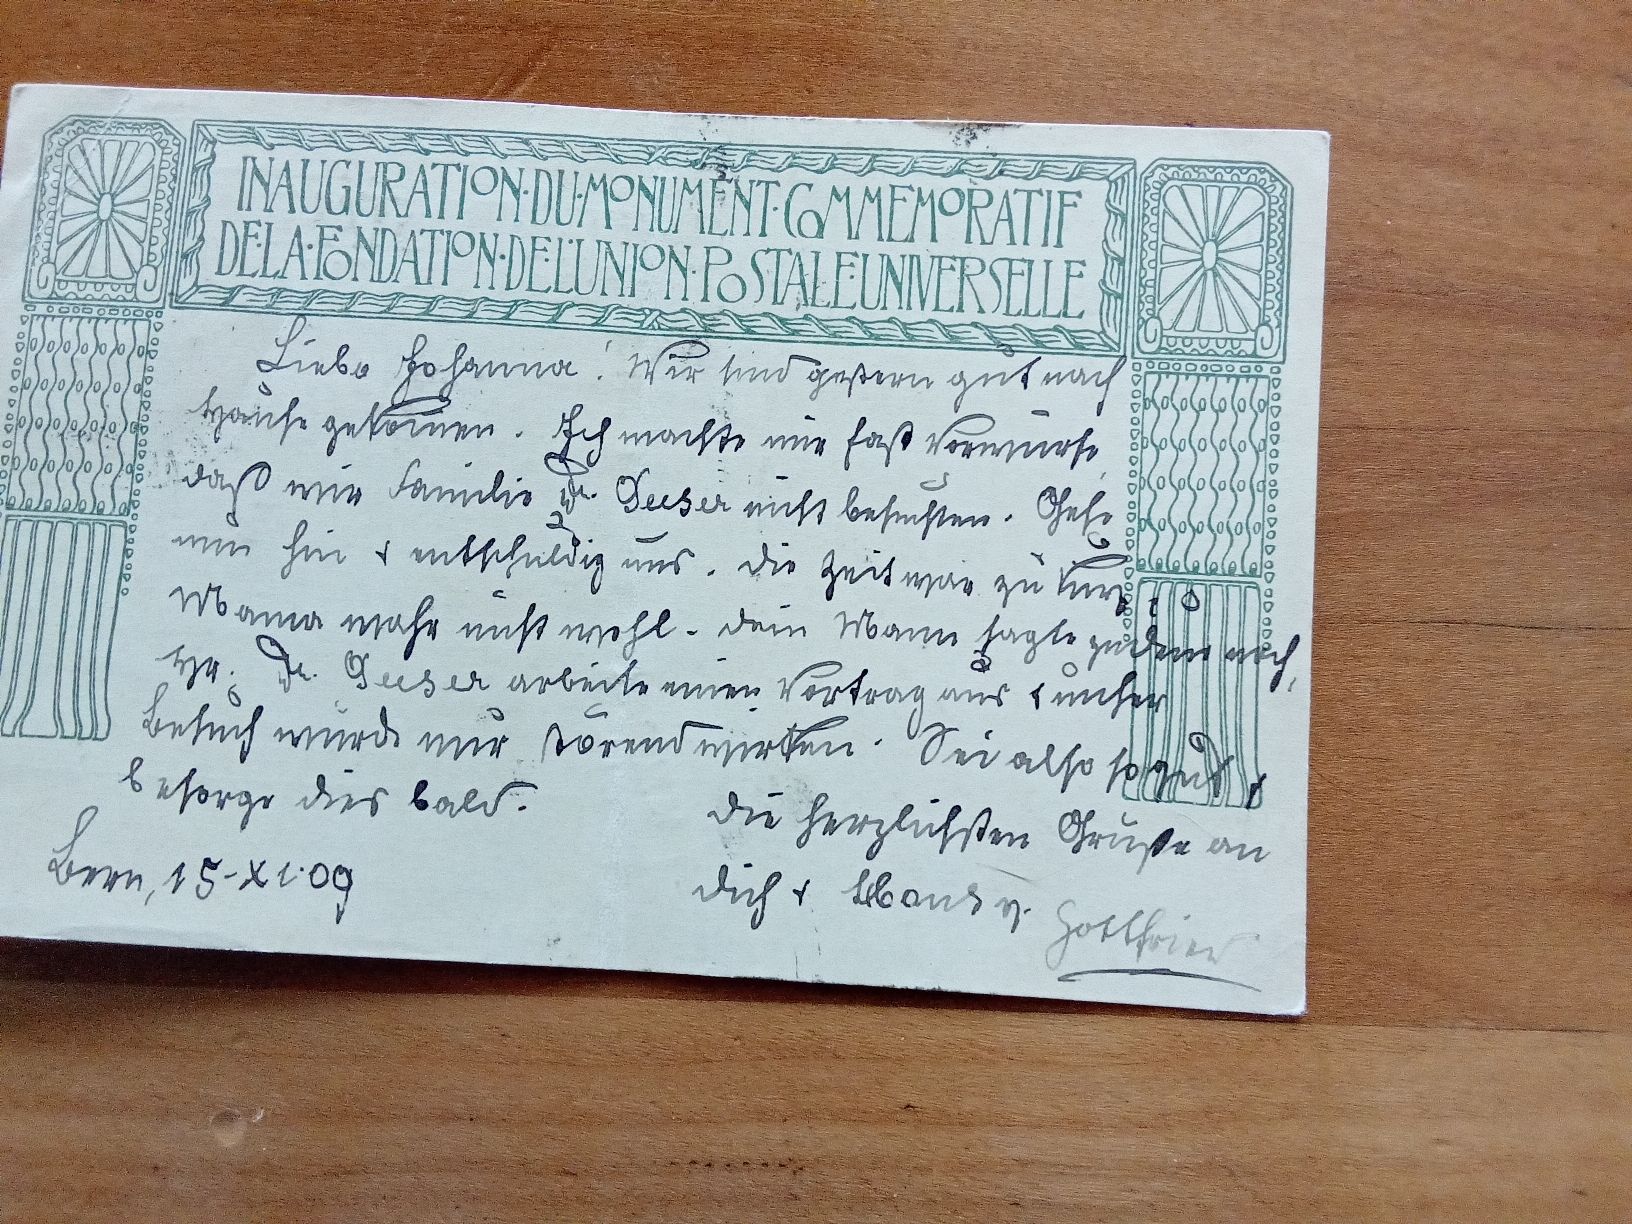 INAUGURATION·DU·MONUMENT·COMMEMORATIF
DE·LA·FONDATION·DE·L'UNION·POSTALE·UNIVERSELLE
Liebe Johanna! Wir sind gestern gut nach
Hause gekommen. Ich machte mir fast Vorwürfe,
daß wir Familie Dr. Geeser nicht besuchten. Gehe
nun hin & entschuldig uns. Die Zeit war zu kurz &
Mama wahr nicht wohl. Dein Mann sagte zudem noch,
Hr. Dr. Geeser arbeite einen Vortrag aus & unser
Besuch würde nur störend wirken. Sei also so gut &
besorge dies bald.
Die herzlichsten Grüße an
Bern, 15-XI.09
Dich & v.
Gottfried